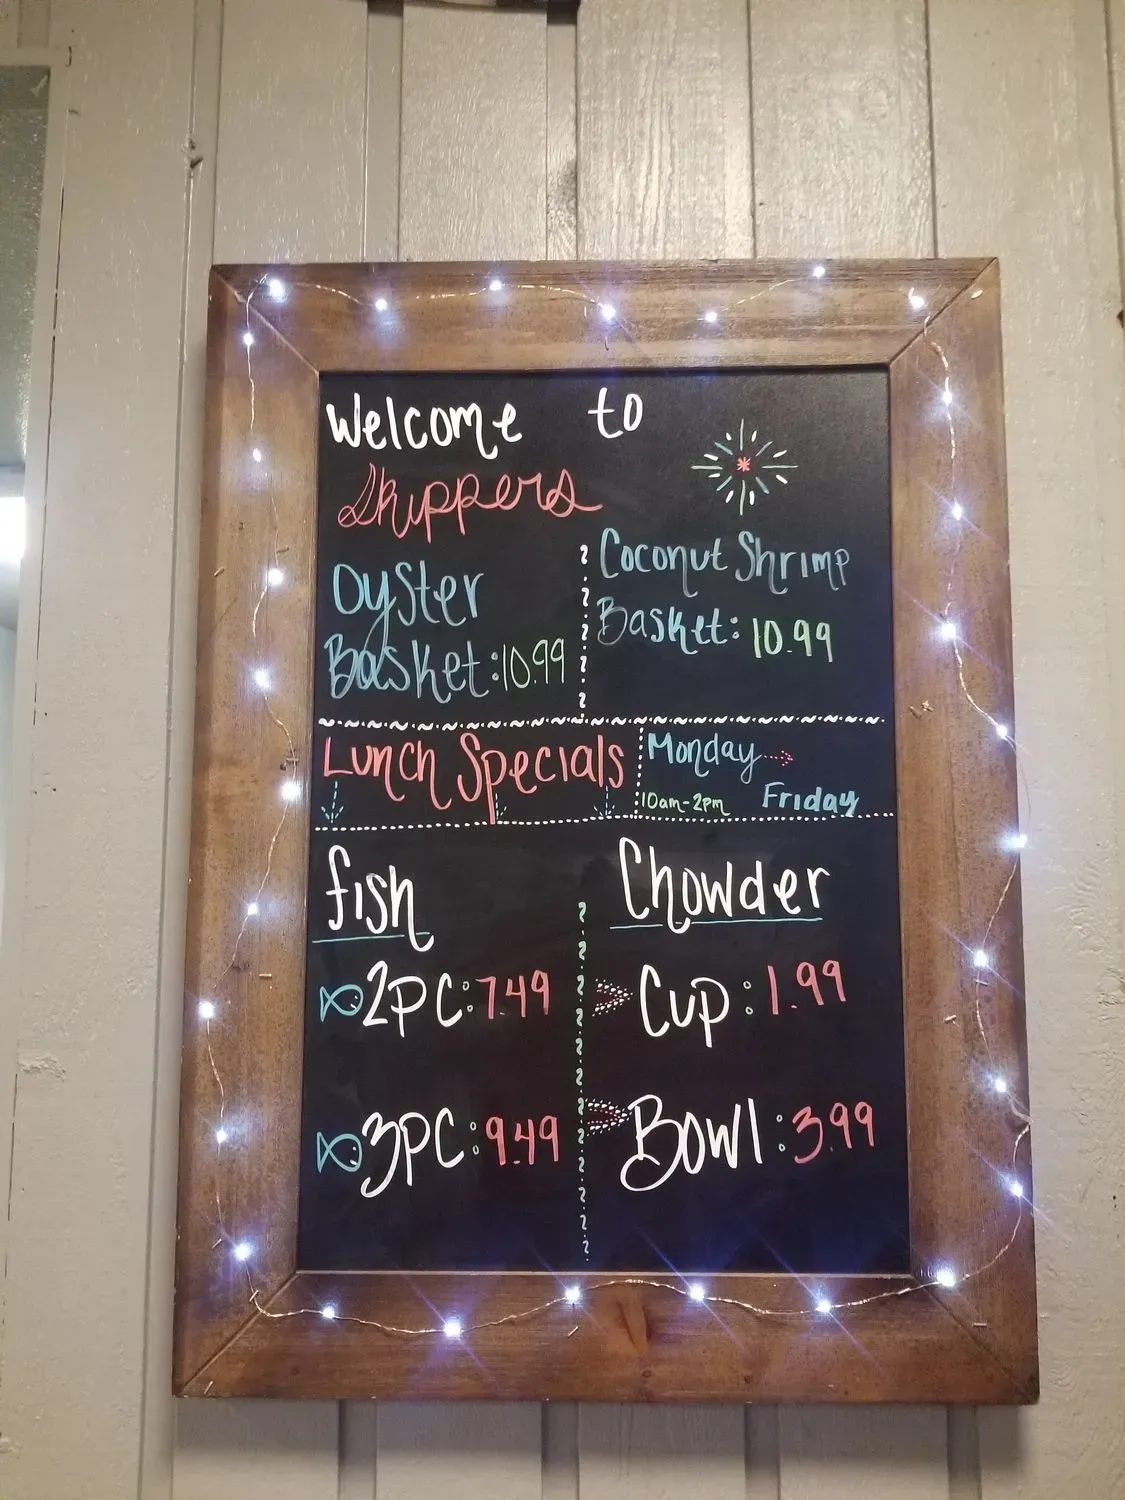 Welcome to
Skippers
Oyster
Basket: 10.99
Coconut Shrimp
Basket: 10.99
Lunch Specials
Monday
10am-2pm Friday
fish
2PC: 7.49
3PC: 9.49
Chowder
Cup: 1.99
Bowl: 3.99